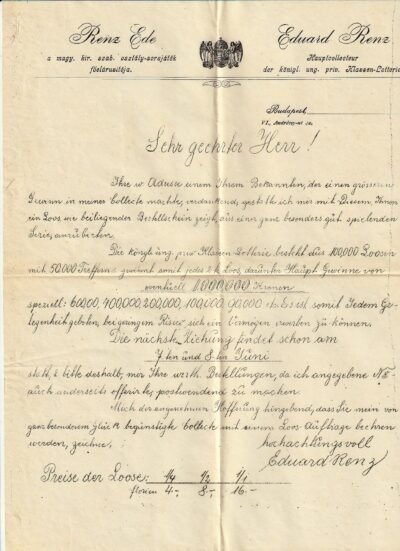 Renz Ede
a magy. kir. szab. osztály-sorsjáték
főelárusitója.
Eduard Renz
Hauptcollecteur
der königl. ung. priv. Klassen-Lotterie
Budapest,
VI.,
Sehr geehrter Herr!
Ihre w. Adresse einem Ihrem Bekannten, der einen grösseren
Gewinn in meiner Collecte machte, verdankend, gestatte ich mir mit Diesem, Ihnen
ein Loos wie beiliegender Bestellschein zeigt, aus einer ganz besonders gut spielenden
Serie, anzubieten.
Die königl. ung. priv. Klassen-Lotterie besteht aus 100,000 Loosen
mit 50.000 Treffern, es gewinnt somit jedes 2te Loos, darunter Haupt Gewinne von
eventuell 1000000 Kronen
speziell: 600,000, 400,000, 200,000, 100,000, 90,000 etc. Es ist somit Jedem Ge-
legenheit geboten, bei geringem Risico sich ein Vermögen erwerben zu können.
Die nächste Ziehung findet schon am
7ten und 8ten Juni
statt, & bitte deshalb, mir Ihre werth. Bestellungen, da ich angegebene No
auch anderseits offerirte, postwendend zu machen.
Mich der angenehmen Hoffnung hingebend, dass Sie mein von
ganz besonderem Glück begünstigte Collecte mit einem Loos-Auftrage beehren
werden, zeichne,
hochachtungsvoll
Eduard Renz
Preise der Loose: 1/4 1/2 1/1
florien 4.- 8.- 16.-